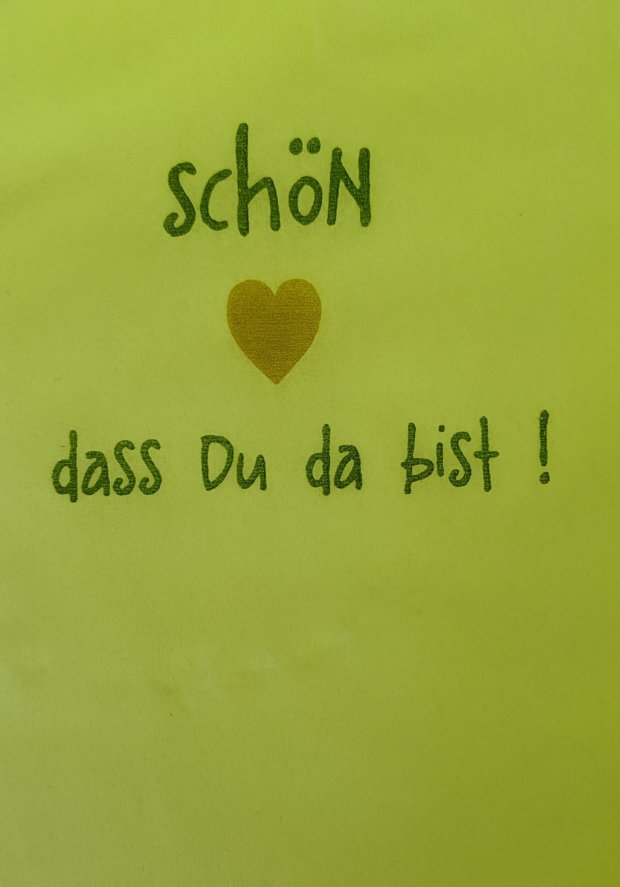 schöN
dass Du da bist !